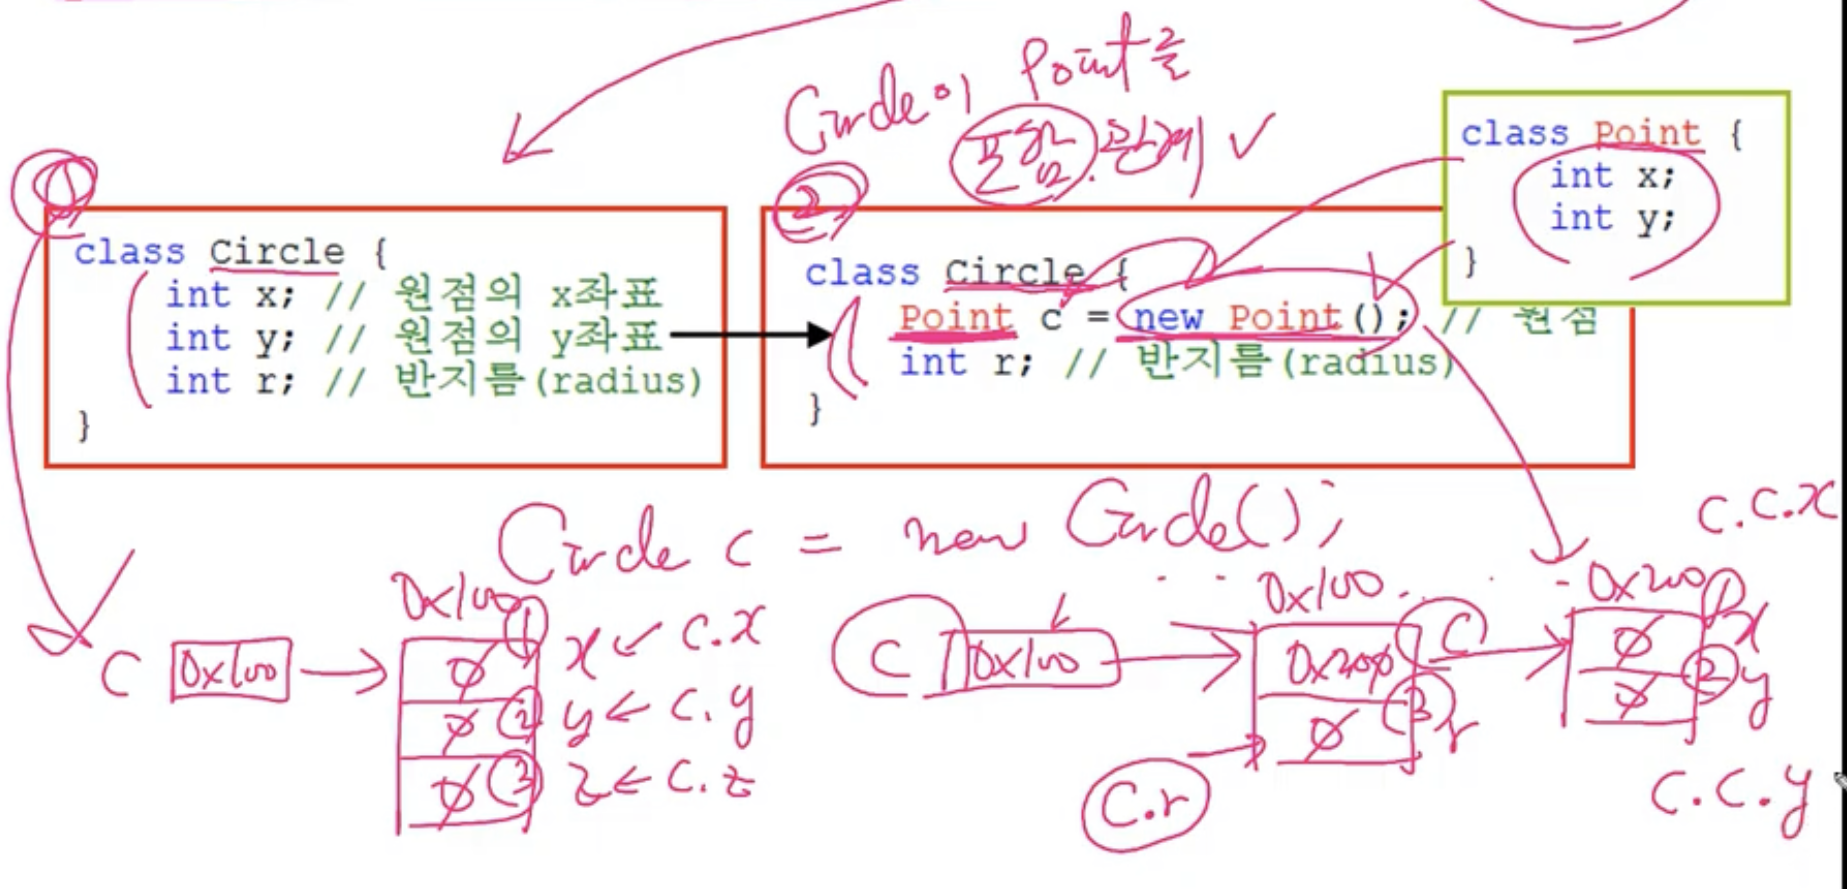 Circle이 Point를
포함 관계 ✓
class Point {
int x;
int y;
}
①
class Circle {
int x; // 원점의 x좌표
int y; // 원점의 y좌표
int r; // 반지름(radius)
}
②
class Circle {
Point c = new Point(); // 원점
int r; // 반지름(radius)
}
Circle c = new Circle();
c.c.x
0x100
C 0x100
0 ① x ← c.x
0 ② y ← c.y
0 ③ z ← c.z
C 0x100
0x100
0x200 C
0 ③ r
C.r
0x200
0 ① x
0 ② y
c.c.y